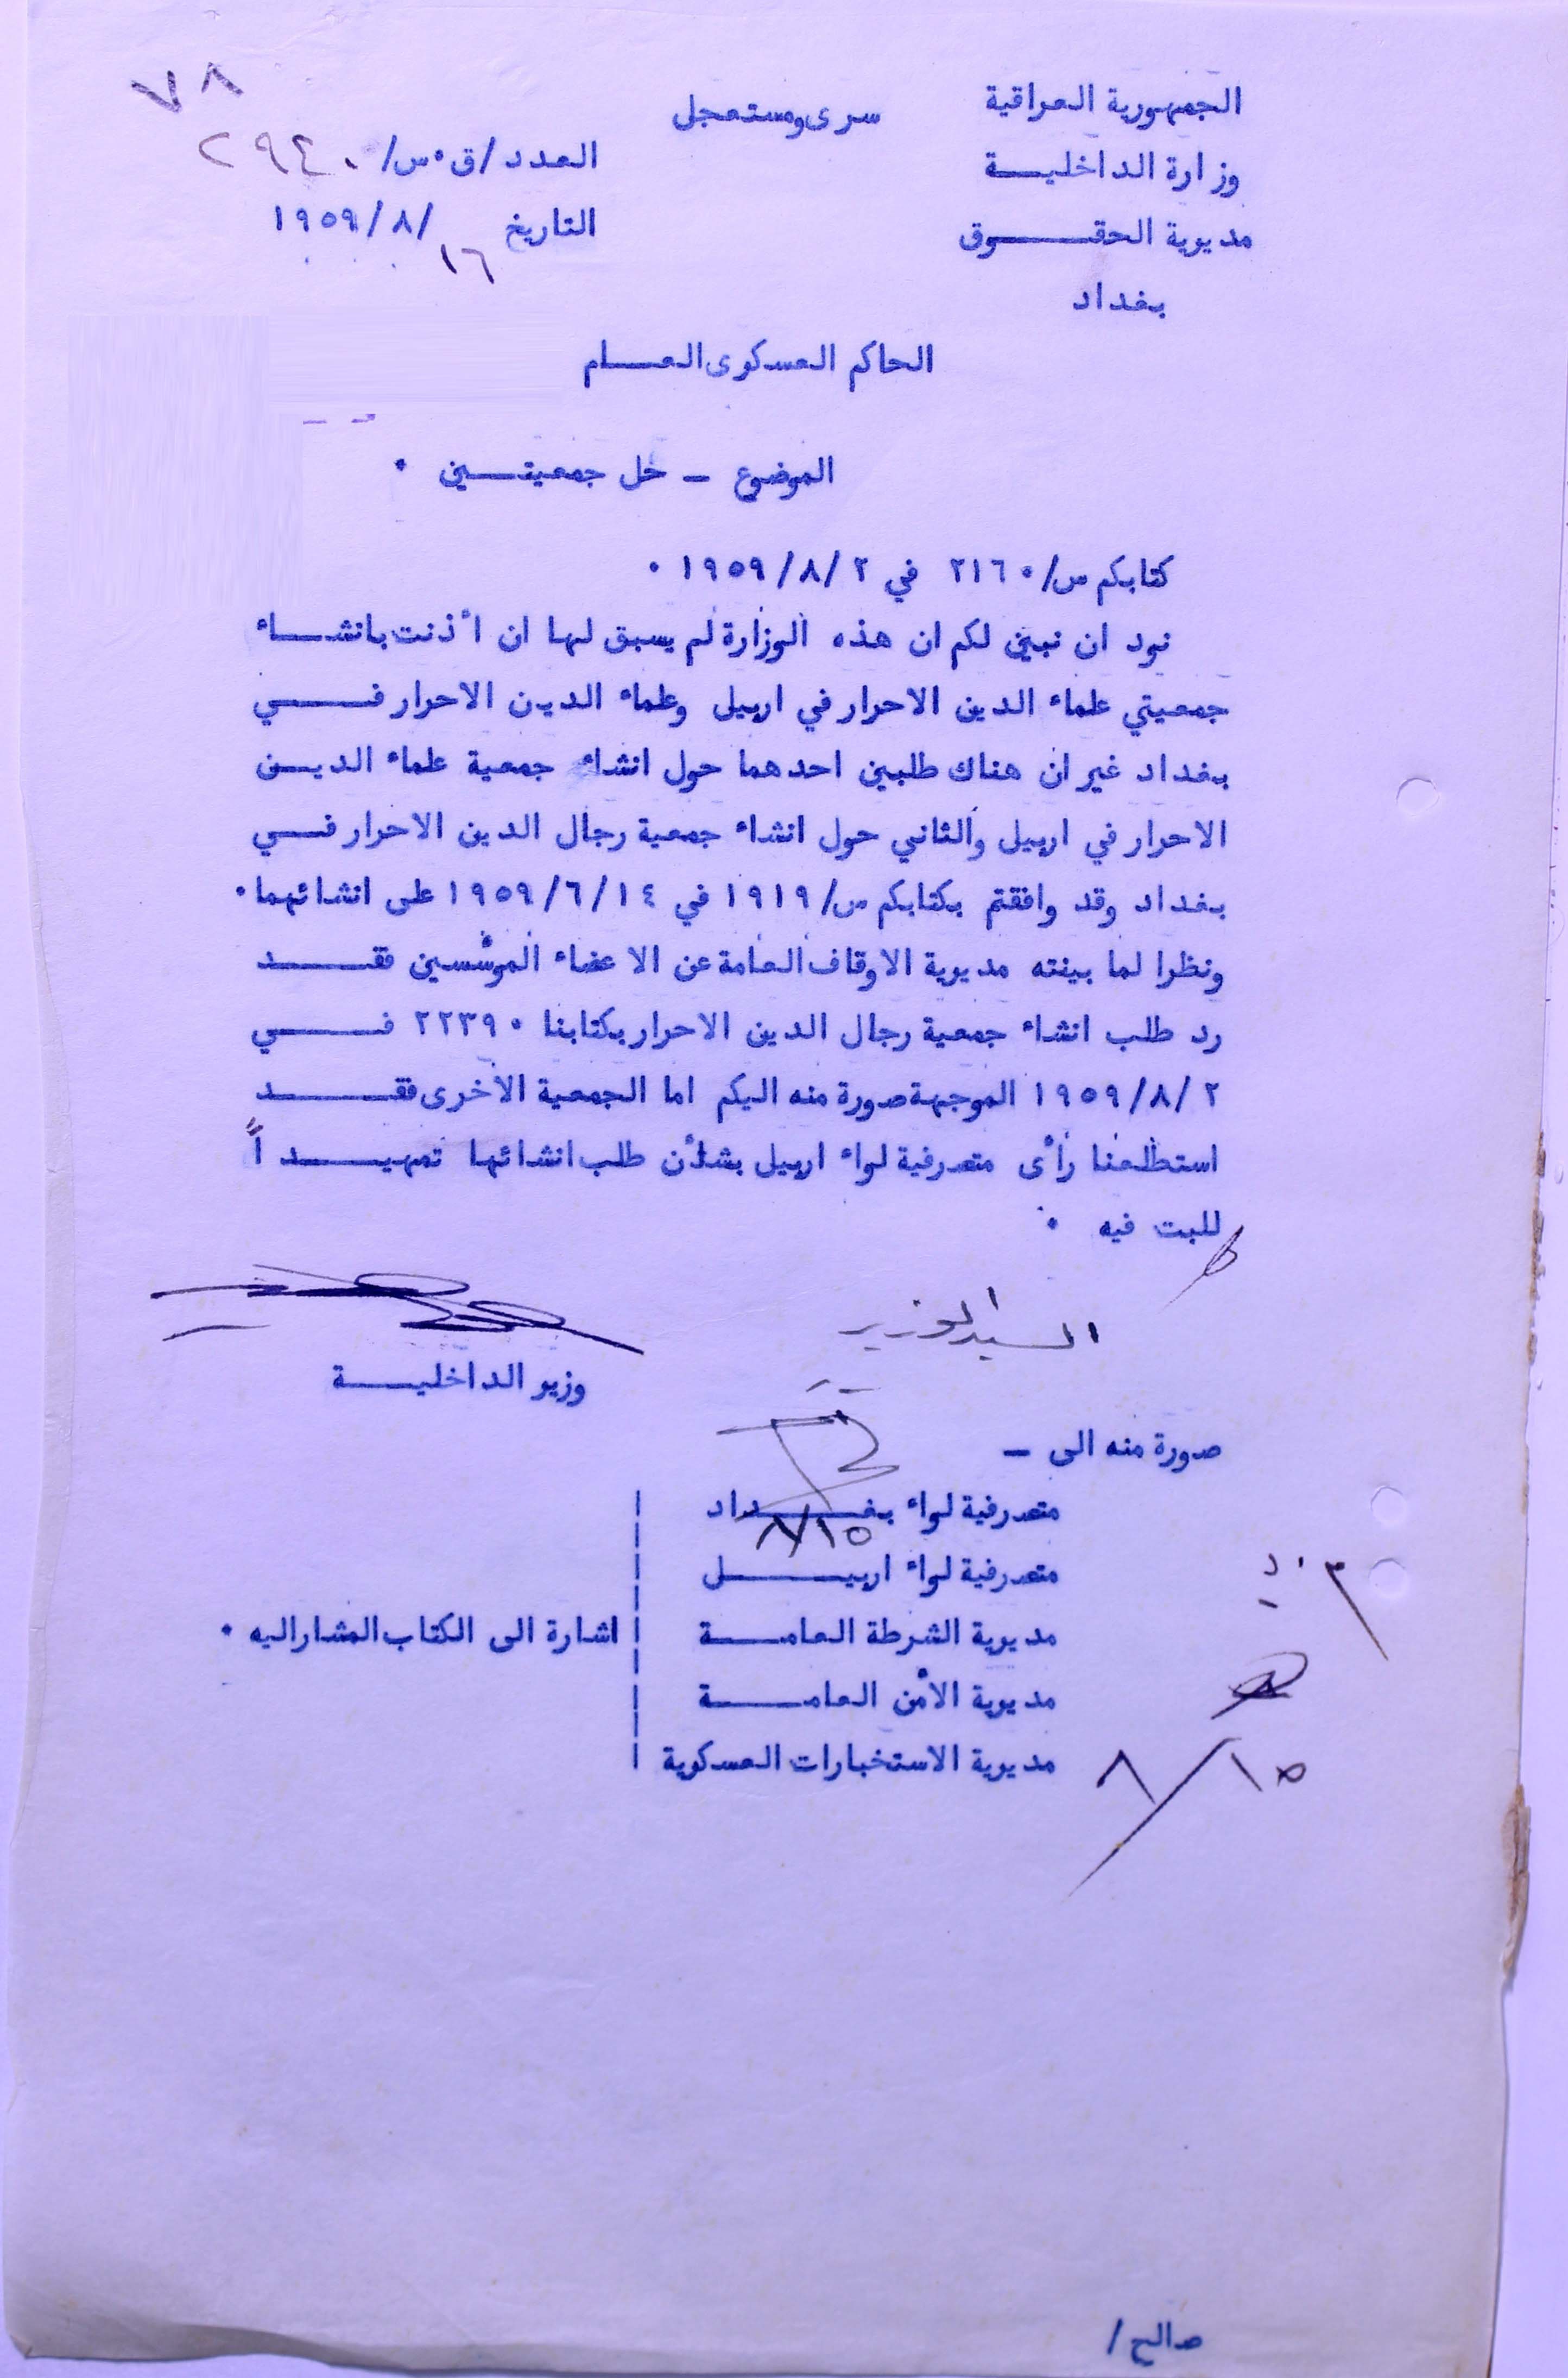 ٧٨
الجمهورية العراقية
سرى ومستعجل
وزارة الداخليـــة
العدد /ق٠س/ ٢٩٤٠
مديرية الحقـــوق
التاريخ ١٦/ ٨/ ١٩٥٩
بغداد
الحاكم العسكرى العـــام
الموضوع – حل جمعيتـــين ٠
كتابكم س/٢١٦٠ في ٢/ ٨/ ١٩٥٩ ٠
نود ان نبين لكم ان هذه الوزارة لم يسبق لها ان أذنت بانشـــاء
جمعيتي علماء الدين الاحرار في اربيل وعلماء الدين الاحرار فـــي
بغداد غير ان هناك طلبين احدهما حول انشاء جمعية علماء الديـــن
الاحرار في اربيل والثاني حول انشاء جمعية رجال الدين الاحرار فـــي
بغداد وقد وافقتم بكتابكم س/ ١٩١٩ في ١٤/ ٦/ ١٩٥٩ على انشائهما ٠
ونظرا لما بينته مديرية الاوقاف العامة عن الاعضاء المؤسسين فقـــد
رد طلب انشاء جمعية رجال الدين الاحرار بكتابنا ٢٢٣٩٠ فـــي
٢/ ٨/ ١٩٥٩ الموجهة صورة منه اليكم اما الجمعية الأخرى فقـــد
استطلعنا رأى متصرفية لواء اربيل بشأن طلب انشائها تمهيـــداً
للبت فيه ٠
السيد الوزير
وزير الداخليـــة
صورة منه الى –
متصرفية لواء بغـــداد
٨/١٥
متصرفية لواء اربيـــل
مديرية الشرطة العامـــة
اشارة الى الكتاب المشار اليه ٠
مديرية الأمن العامـــة
مديرية الاستخبارات العسكرية
٨/١٥
صالح /